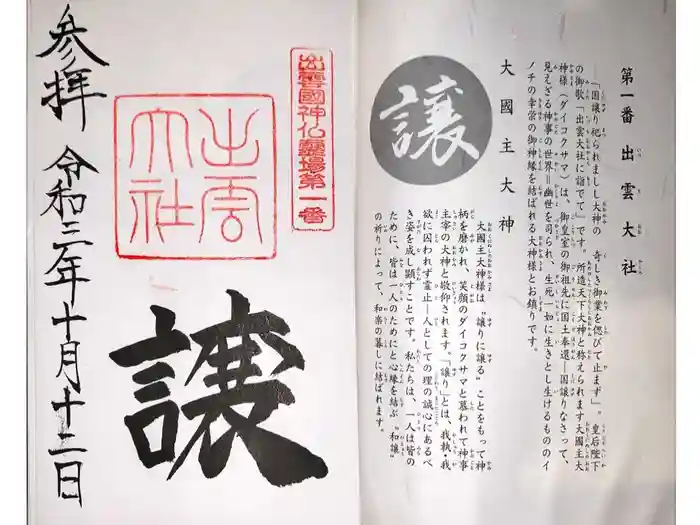 第一番 出雲大社
「国譲り祀られまし大神の 奇しき御業を偲びて止まず」。皇后陛下
の御歌「出雲大社に詣でて」です。所造天下大神と称えられます大國主大
神様(ダイコクサマ)は、御皇室の御祖先に国土奉還=国譲りなさって、
見えざる神事の世界=幽世を司られ、生死一如に生きとし生けるもののイ
ノチの幸栄の御神縁を結ばれる大神様とお鎮りです。
大國主大神
譲
大國主大神様は"譲りに譲る"ことをもって神
柄を磨かれ、笑顔のダイコクサマと慕われて神事
主宰の大神と敬仰されます。「譲り」とは、我執・我
欲に囚われず霊止=人としての理の誠心にあるべ
き姿を成し顕すことです。私たちは、一人は皆の
ために、皆は一人のためにと心縁を結ぶ"和譲"
の祈りによって、和楽の暮しに結ばれます。
出雲國神仏霊場第一番
出雲
大社
譲
参拝 令和三年十月十二日